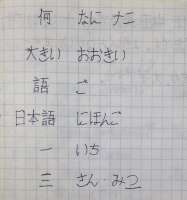 何 なに ナニ
大きい おおきい
語 ご
日本語 にほんご
一 いち
三 さん・みつ